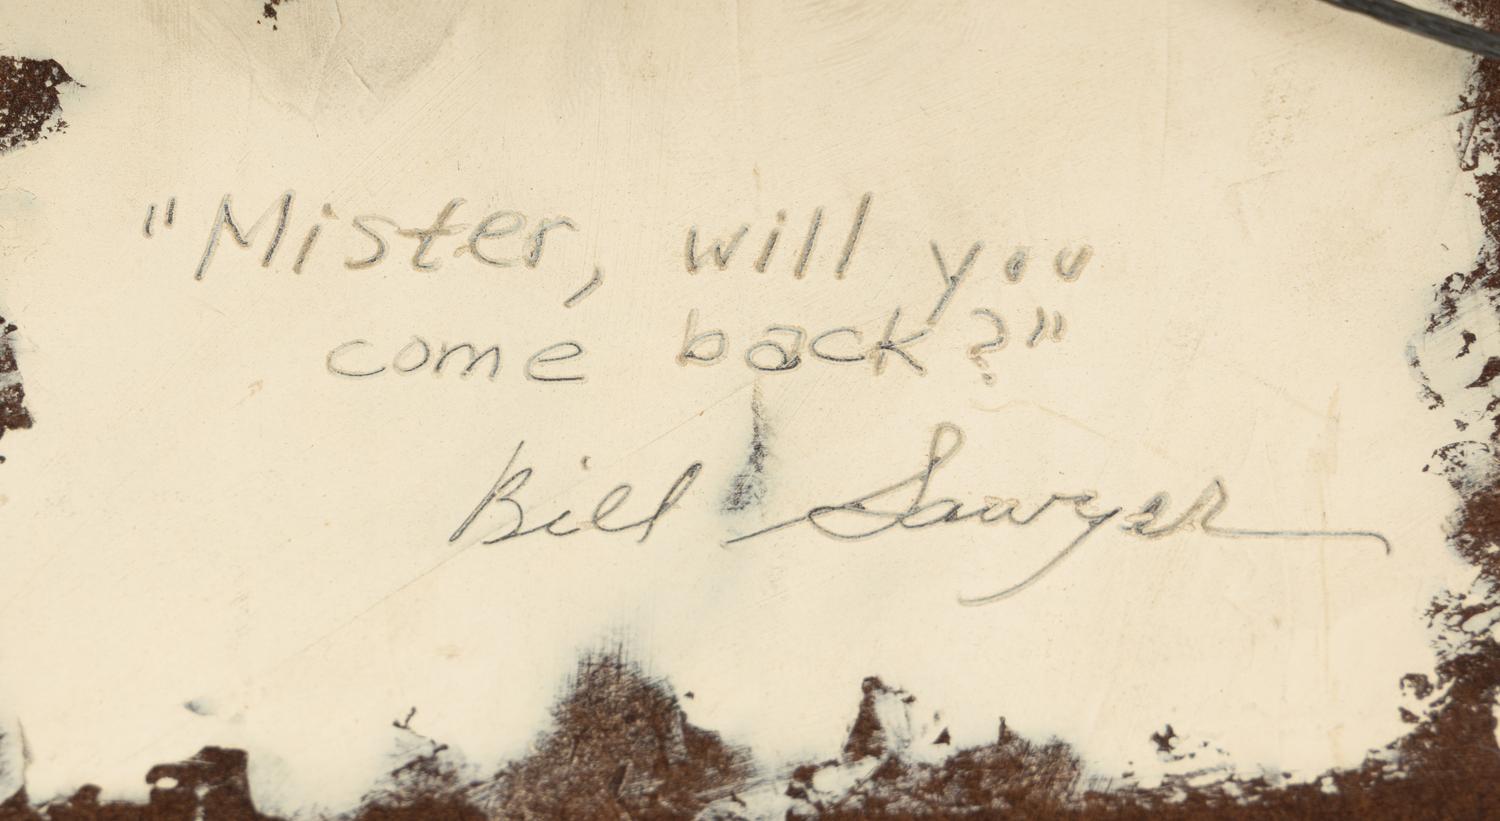 "Mister, will you
come back?"
Bill Sawyer